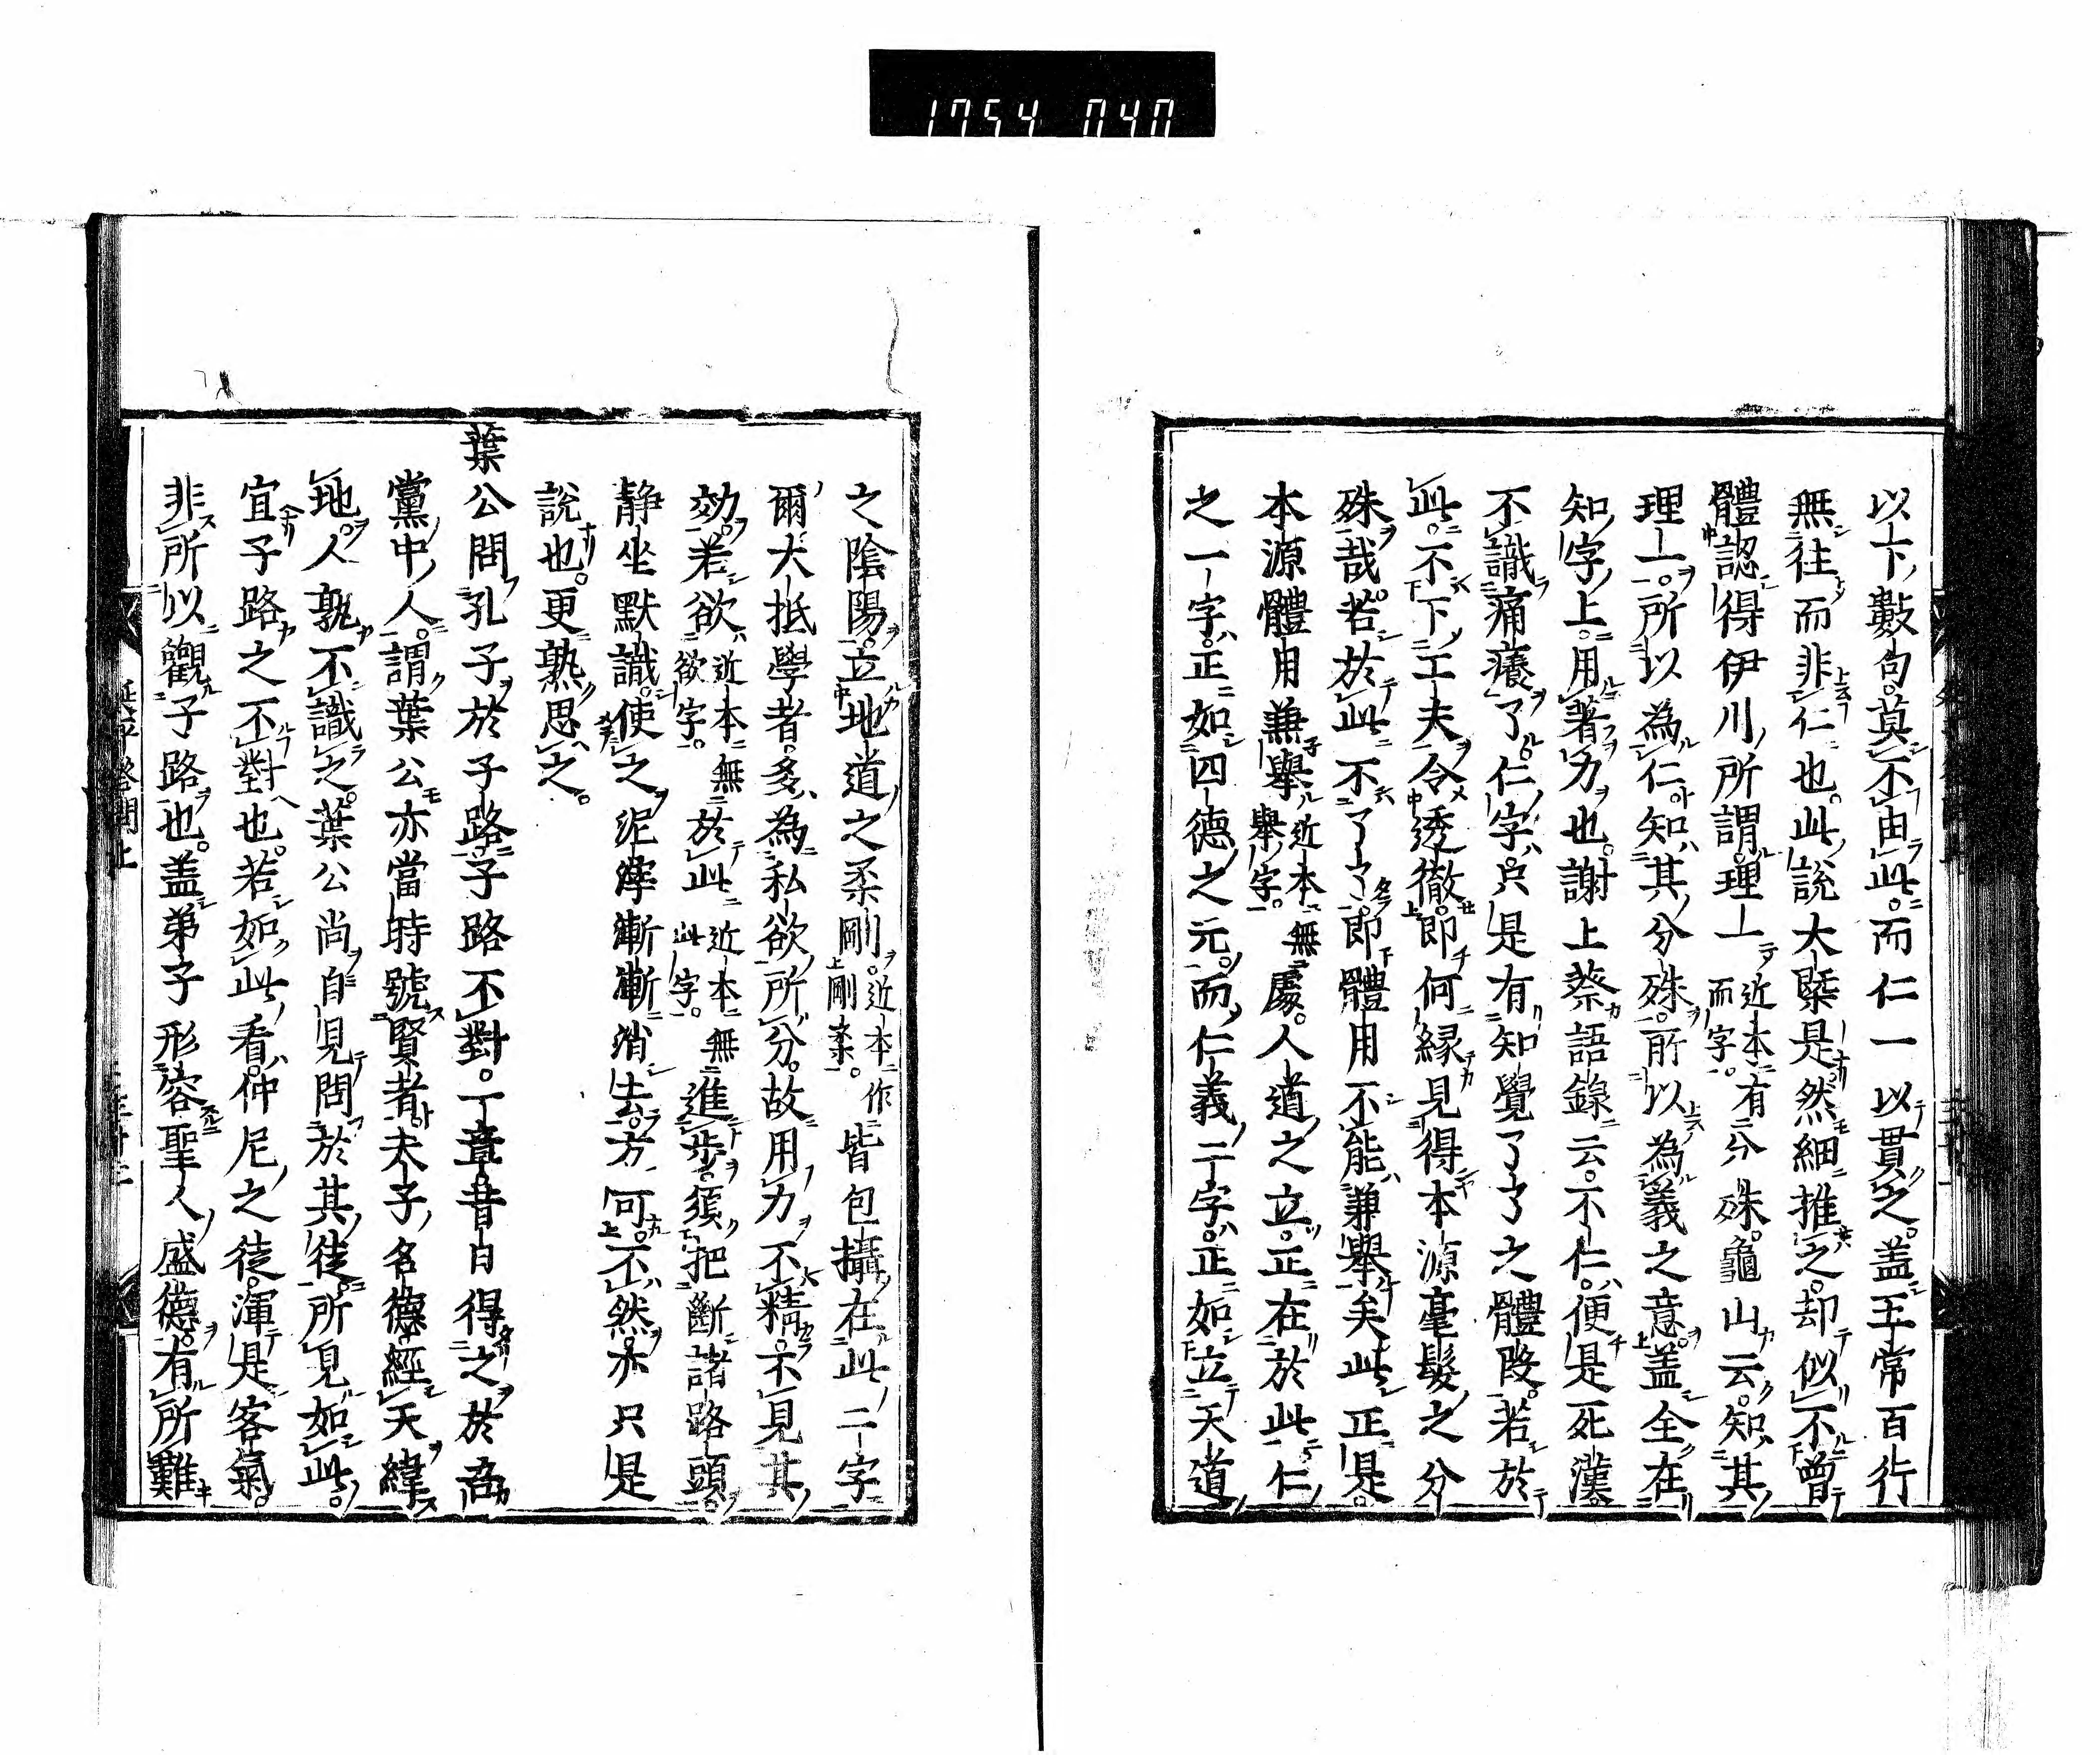 1754 040
以下數句莫不由此而仁一以貫之盖五常百行
無往而非仁也此説大槩是然細推之却似不曽
體認得伊川所謂理一近本有而字分殊龜山云知其
理一所以為仁知其分殊所以為義之意盖全在
知字上用著力也謝上蔡語錄云不仁便是死漢
不識痛癢了仁字只是有知覺了了之體段若於
此不下工夫令透徹即何縁見得本源毫髮之分
殊哉若於此不了了即體用不能兼擧矣此正是
本源體用兼擧近本無擧字處人道之立正在於此仁
之一字正如四德之元而仁義二字正如立天道
之陰陽立地道之柔剛近本作剛柔皆包攝在此二字
爾大抵學者多為私欲所分故用力不精不見其
効若欲近本無欲字於此近本無此字進歩須把斷諸路頭
静坐默識使之泥滓漸漸消去方可不然亦只是
説也更熟思之
葉公問孔子於子路子路不對一章昔日得之於吾
黨中人謂葉公亦當時號賢者夫子名德經天緯
地人孰不識之葉公尚自見問於其徒所見如此
宜子路之不對也若如此看仲尼之徒渾是客氣
非所以觀子路也盖弟子形容聖人盛德有所難
延平答問上